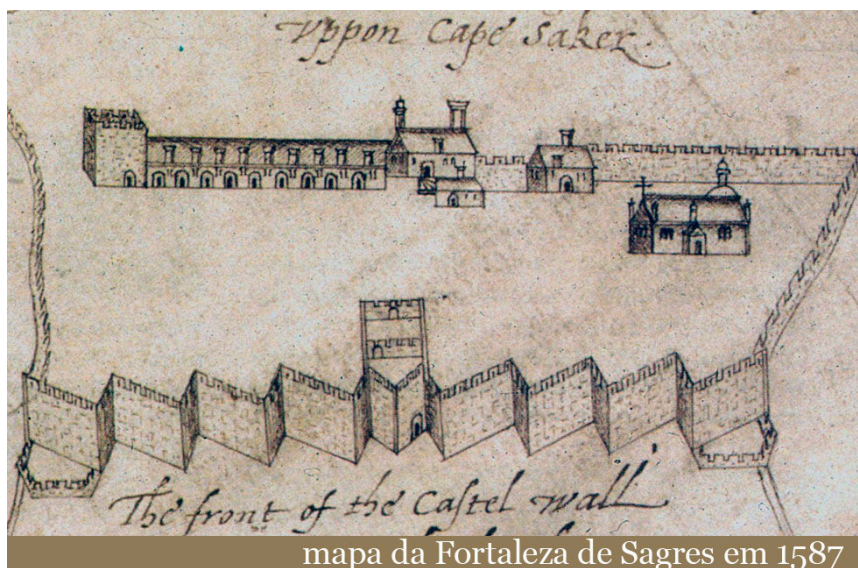 Vppon Cape Saker
The front of the Castel wall
mapa da Fortaleza de Sagres em 1587